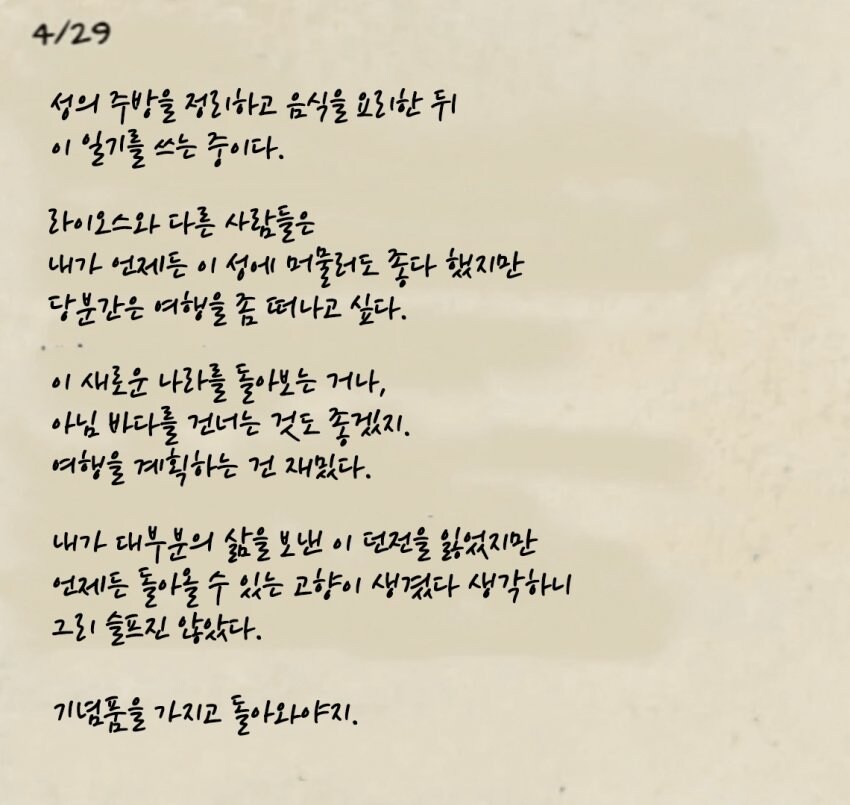 4/29
성의 주방을 정리하고 음식을 요리한 뒤
이 일기를 쓰는 중이다.
라이오스와 다른 사람들은
내가 언제든 이 성에 머물러도 좋다 했지만
당분간은 여행을 좀 떠나고 싶다.
이 새로운 나라를 돌아보는 거나,
아님 바다를 건너는 것도 좋겠지.
여행을 계획하는 건 재밌다.
내가 대부분의 삶을 보낸 이 던전을 잃었지만
언제든 돌아올 수 있는 고향이 생겼다 생각하니
그리 슬프진 않았다.
기념품을 가지고 돌아와야지.